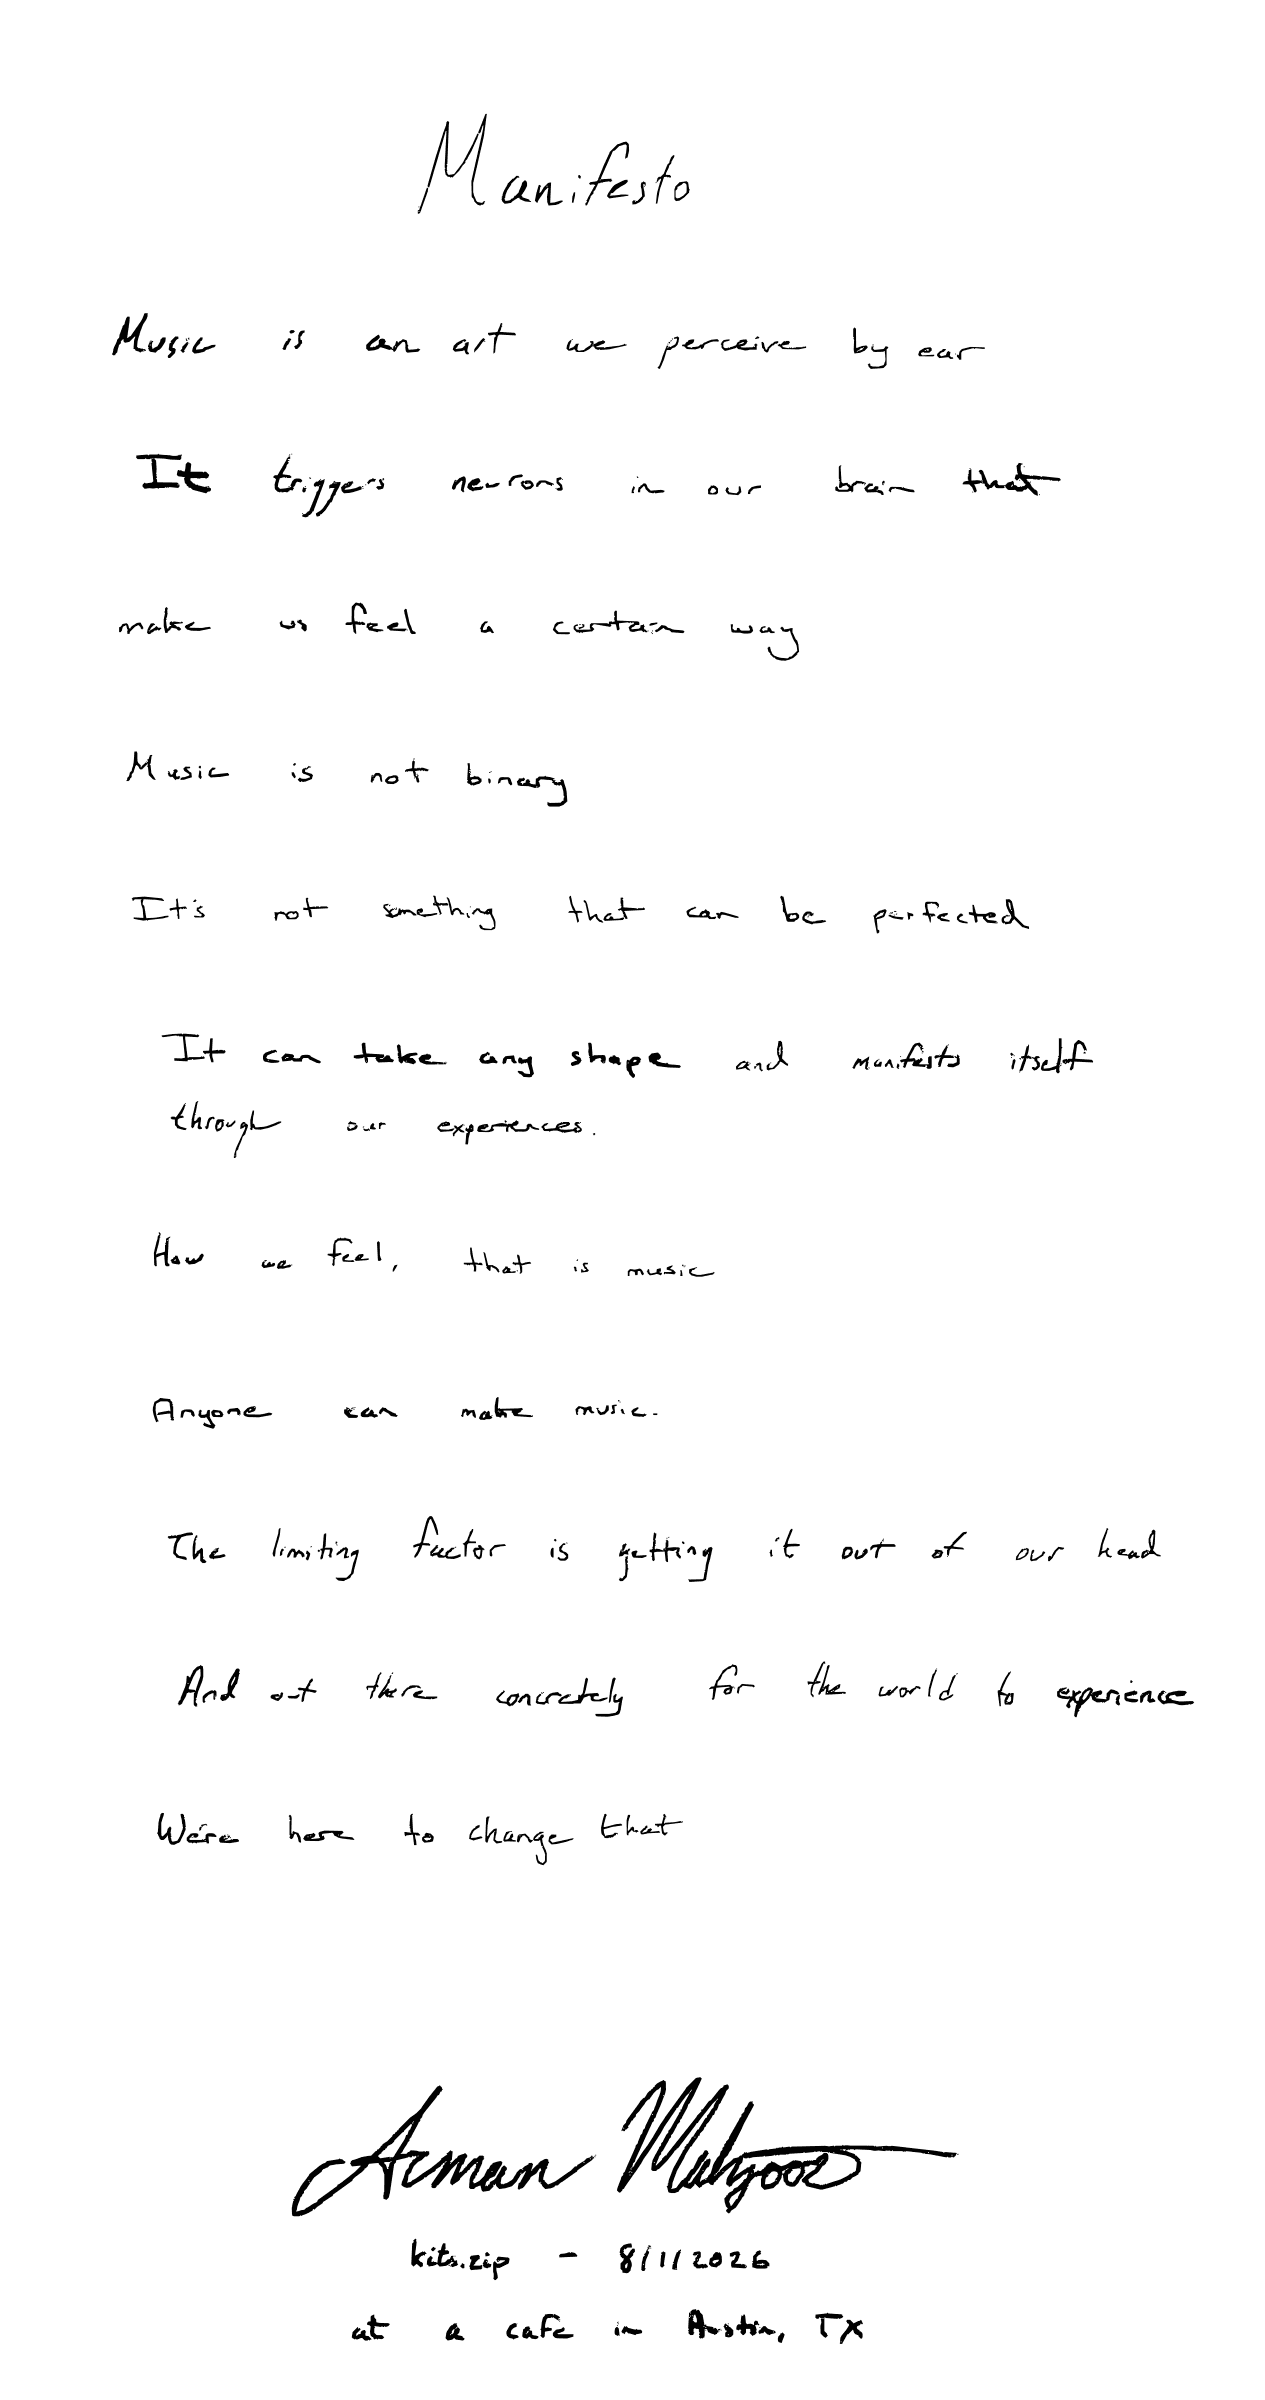 Manifesto
Music is an art we perceive by ear
It triggers neurons in our brain that
make us feel a certain way
Music is not binary
It's not something that can be perfected
It can take any shape and manifests itself
through our experiences.
How we feel, that is music
Anyone can make music.
The limiting factor is getting it out of our head
And out there concretely for the world to experience
We're here to change that
Arman
kits.zip - 8/1/2026
at a cafe in Austin, TX